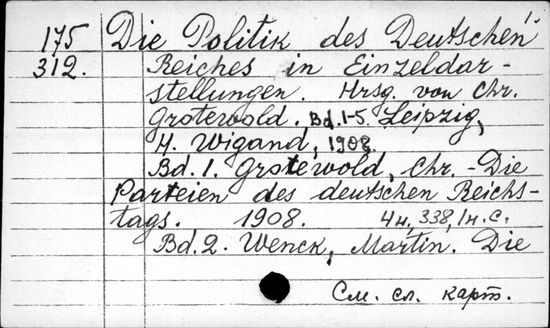 1.
175 Die Politik des Deutschen
312. Reiches in Einzeldar-
stellungen. Hrsg. von Chr.
Grotewold. Bd. 1-5. Leipzig,
H. Wigand, 1908.
Bd. 1. Grotewold, Chr. - Die
Parteien des deutschen Reichs-
tags. 1908. 4 н, 338, 1 н. с.
Bd. 2. Wenck, Martin. Die
См. сл. карт.